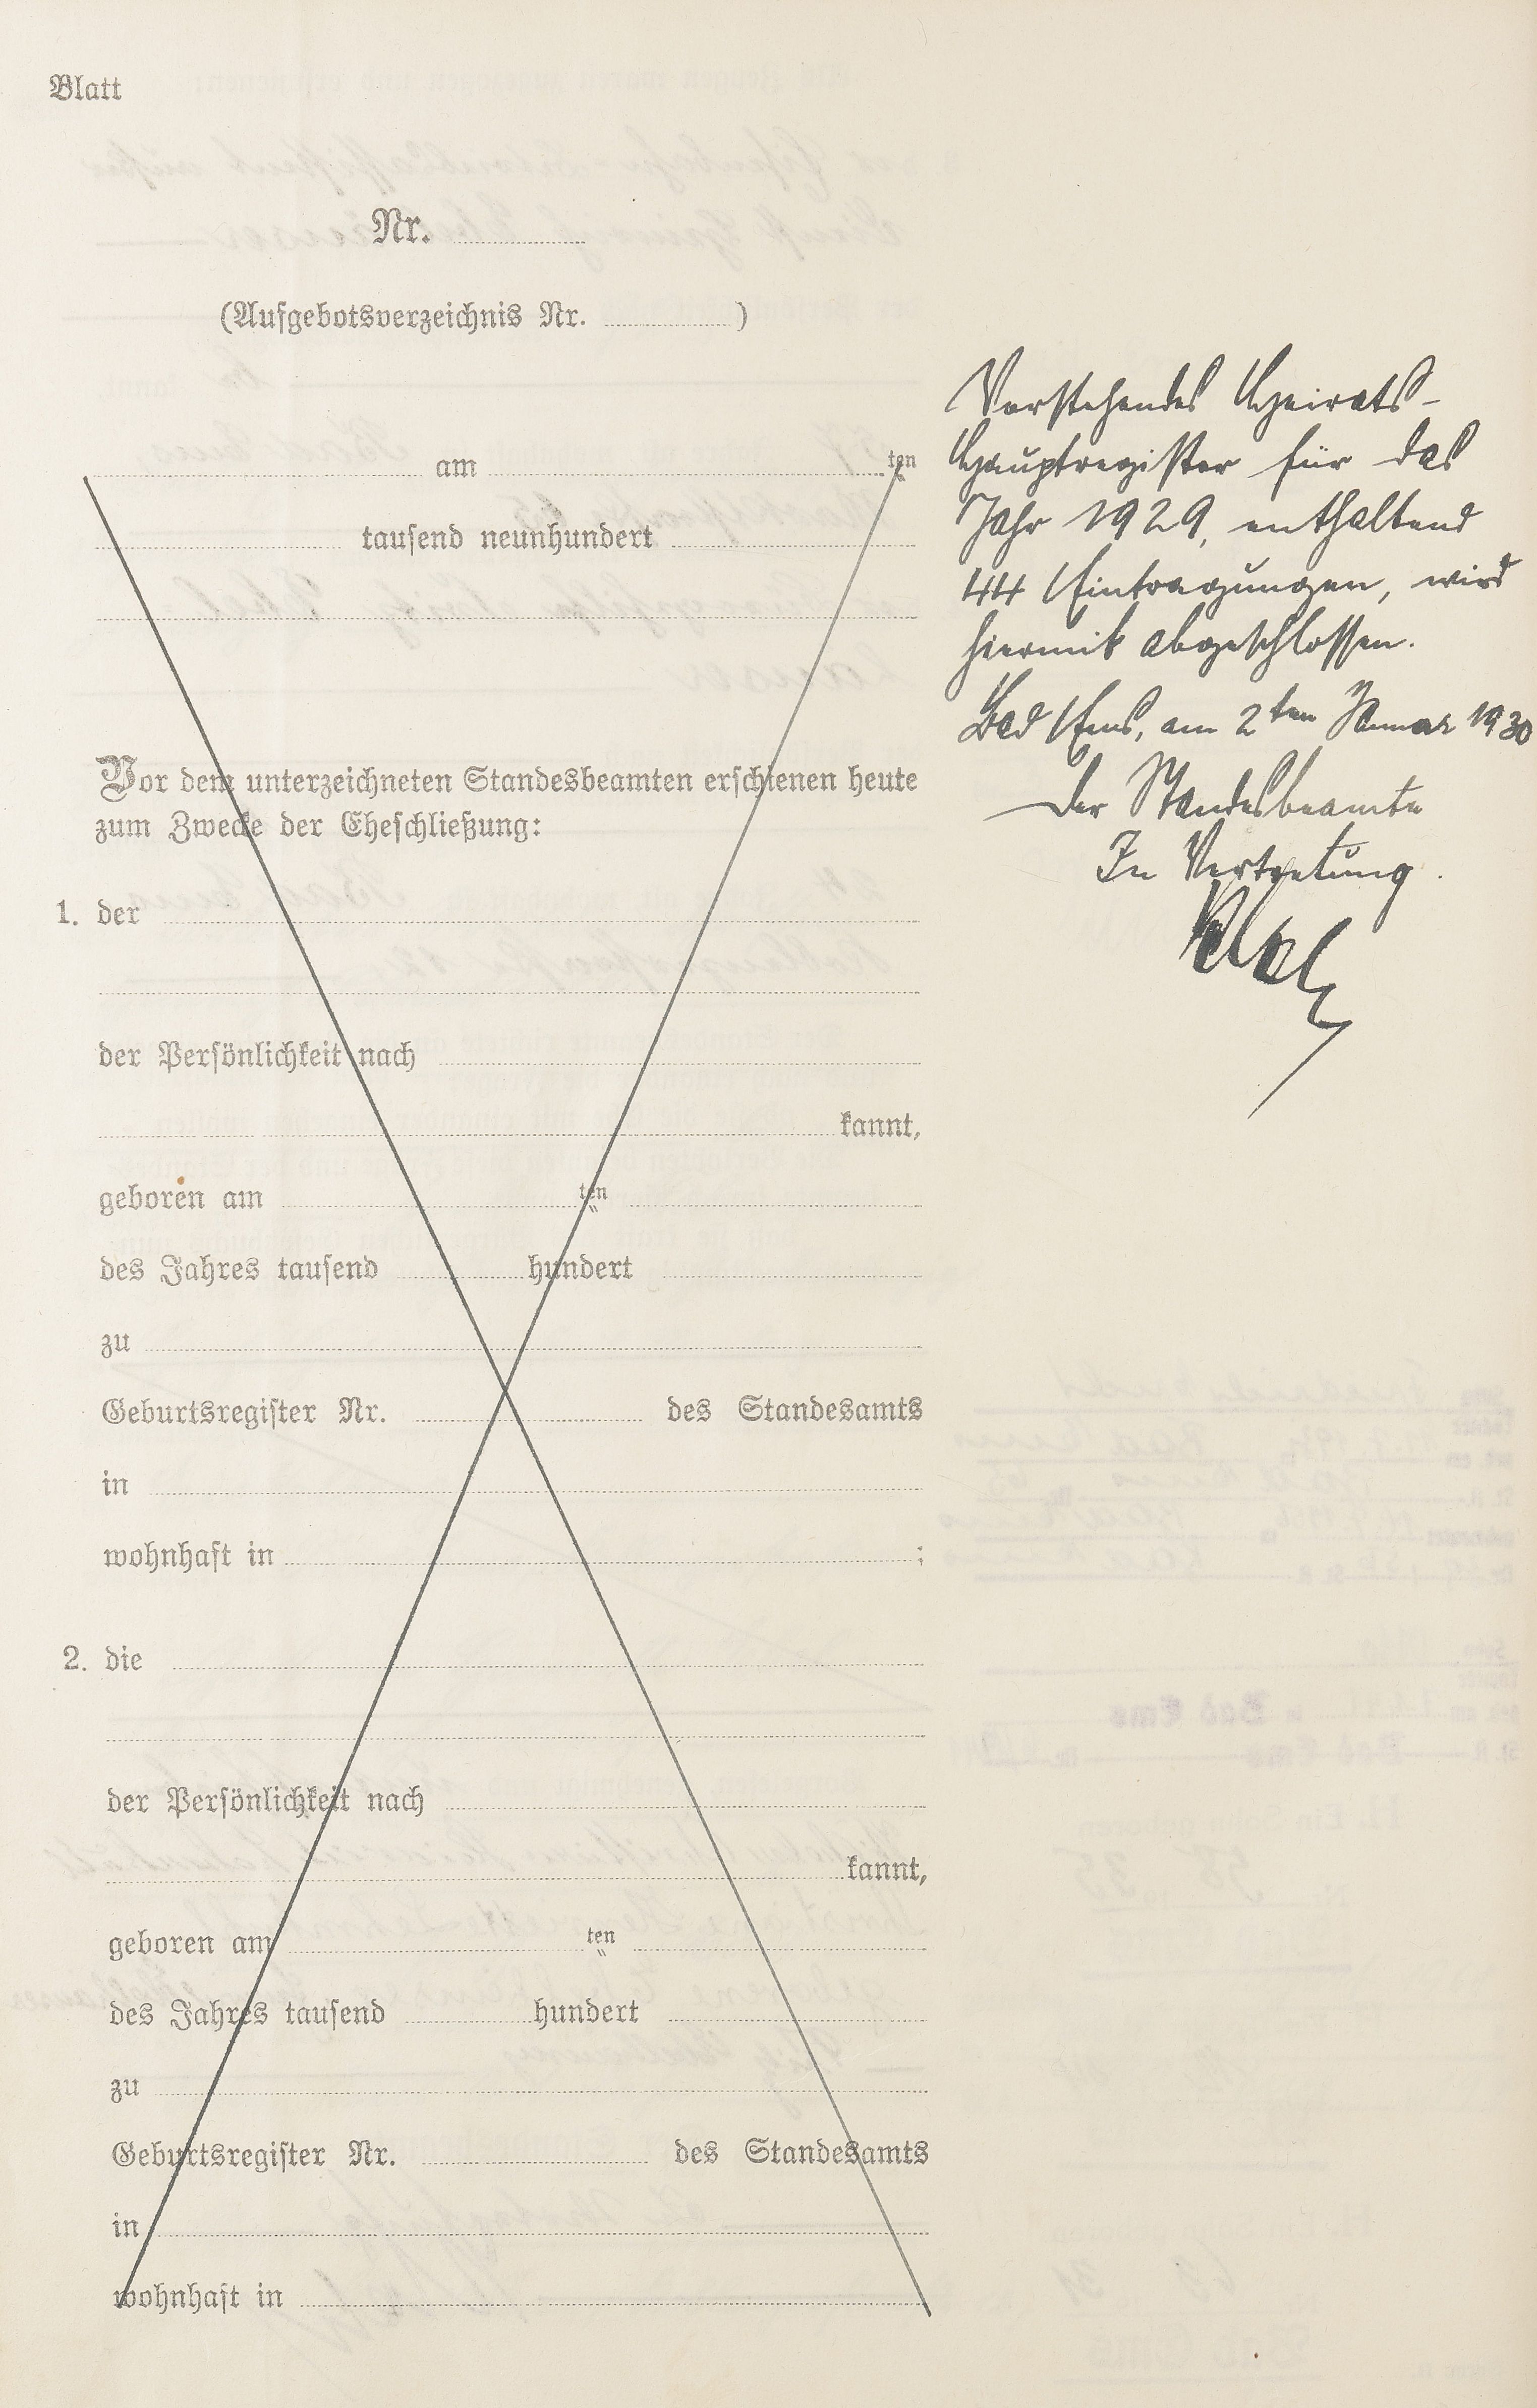 Blatt
Nr.
(Aufgebotsverzeichnis Nr. )
am ten
tausend neunhundert
Vor dem unterzeichneten Standesbeamten erschienen heute
zum Zwecke der Eheschließung:
1. der
der Persönlichkeit nach
kannt,
geboren am ten
des Jahres tausend hundert
zu
Geburtsregister Nr. des Standesamts
in
wohnhaft in ;
2. die
der Persönlichkeit nach
kannt,
geboren am ten
des Jahres tausend hundert
zu
Geburtsregister Nr. des Standesamts
in
wohnhaft in
Vorstehendes Heirats-
Hauptregister für das
Jahr 1929, enthaltend
44 Eintragungen, wird
hiermit abgeschlossen.
Bad Ems, am 2ten Januar 1930
Der Standesbeamte
In Vertretung.